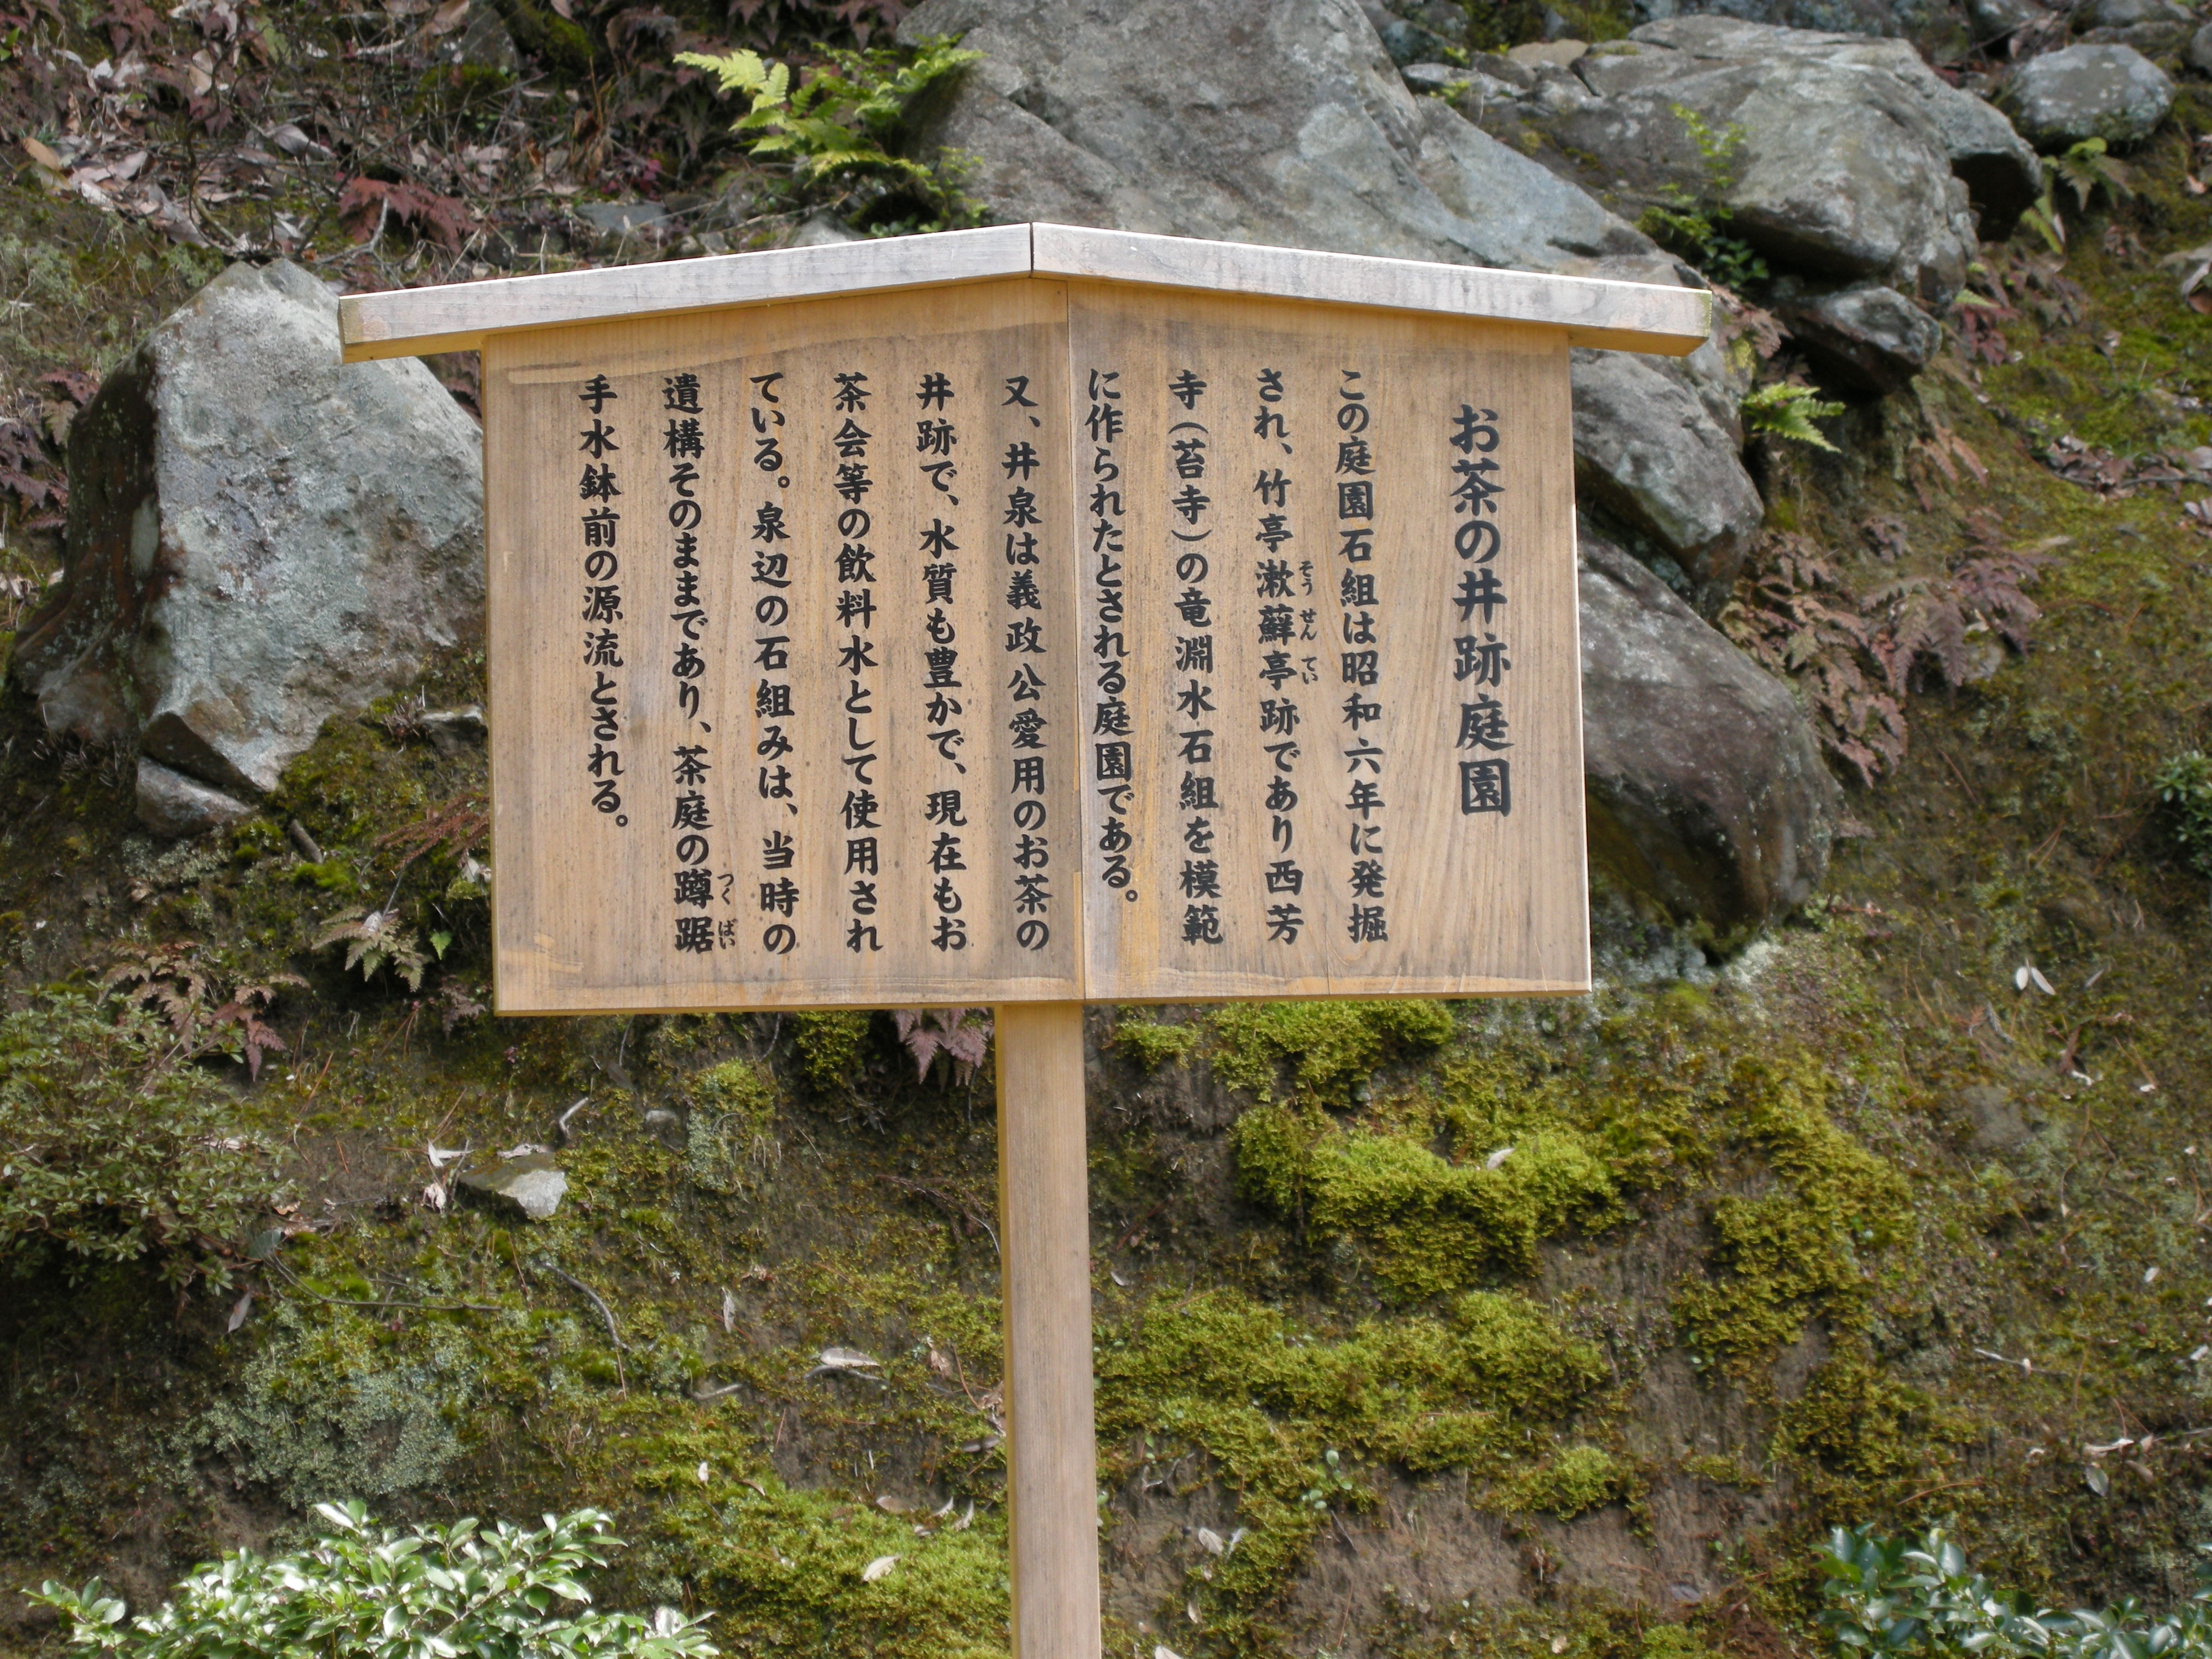 お茶の井跡庭園
この庭園石組は昭和六年に発掘
され、竹亭漱蘚亭跡であり西芳
そう せん てい
寺(苔寺)の竜淵水石組を模範
に作られたとされる庭園である。
又、井泉は義政公愛用のお茶の
井跡で、水質も豊かで、現在もお
茶会等の飲料水として使用され
ている。泉辺の石組みは、当時の
遺構そのままであり、茶庭の蹲踞
つく ばい
手水鉢前の源流とされる。